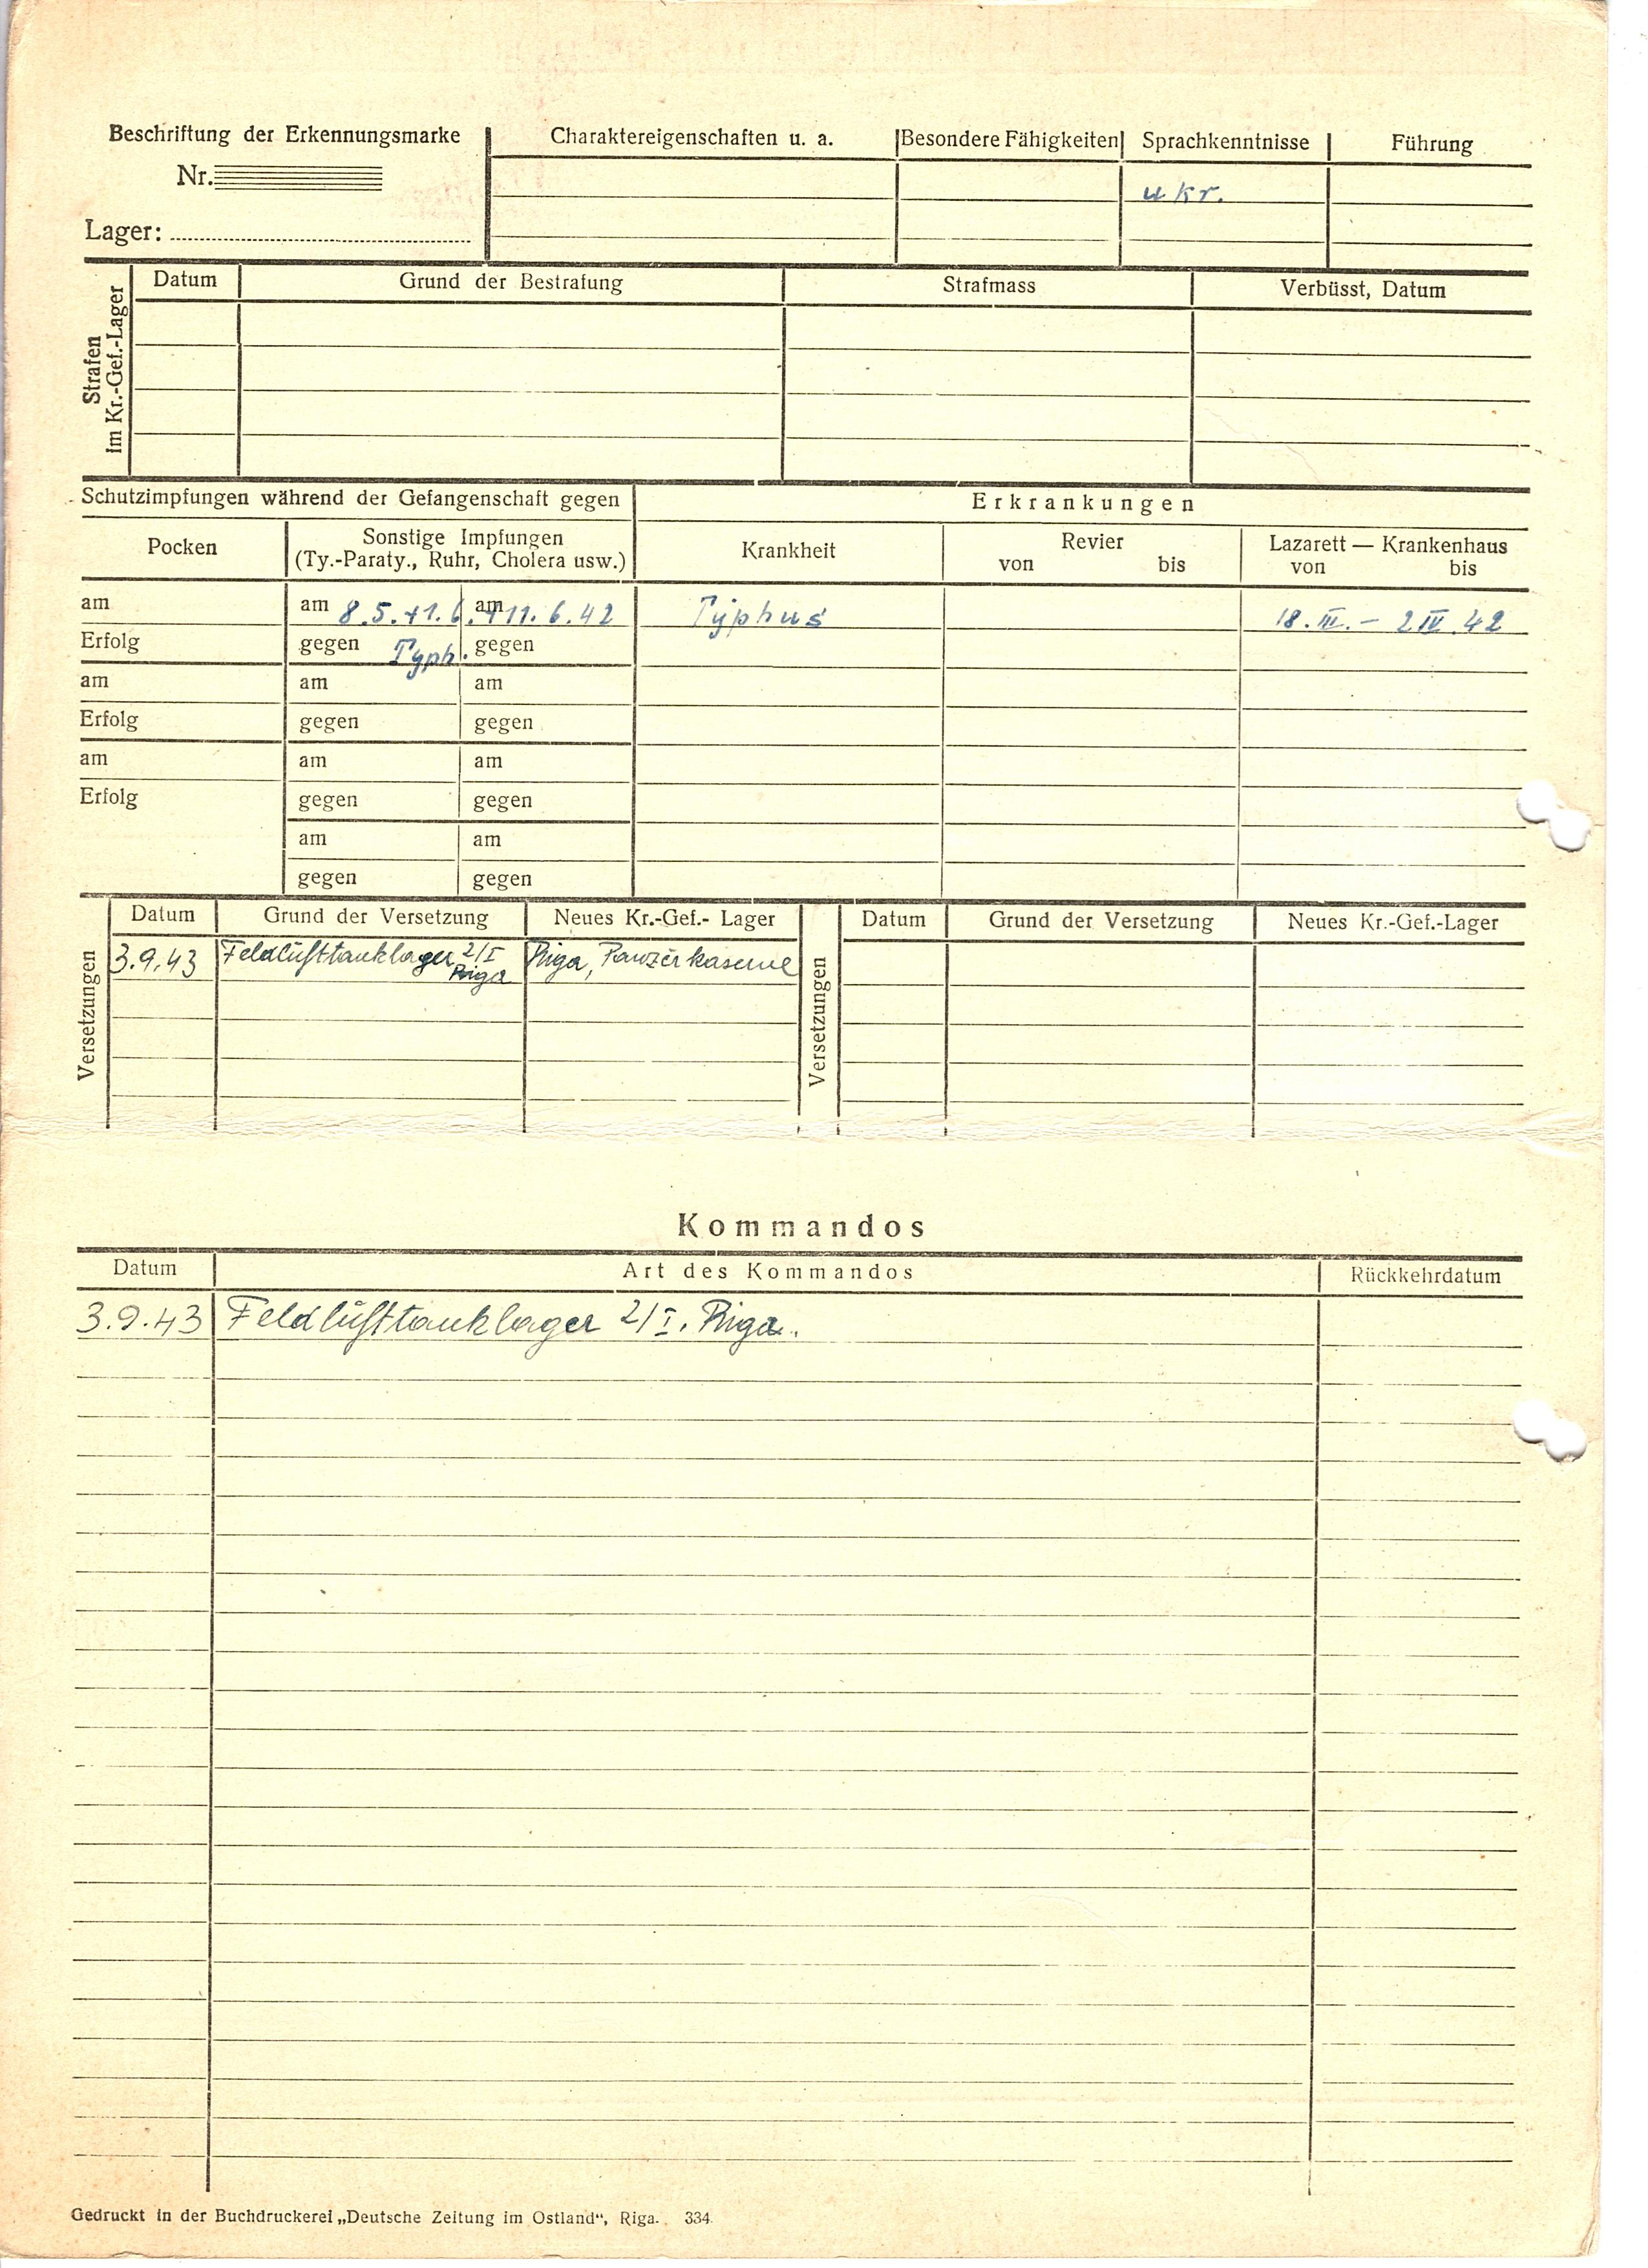 Beschriftung der Erkennungsmarke
Nr.
Lager:
Charaktereigenschaften u. a.
Besondere Fähigkeiten
Sprachkenntnisse
Führung
ukr.
Strafen
im Kr.-Gef.-Lager
Datum
Grund der Bestrafung
Strafmass
Verbüsst, Datum
Schutzimpfungen während der Gefangenschaft gegen
Erkrankungen
Pocken
Sonstige Impfungen
(Ty.-Paraty., Ruhr, Cholera usw.)
Krankheit
Revier
von bis
Lazarett — Krankenhaus
von bis
am
am 8.5.+1.6.+11.6.42
am
Typhus
18.III.- 2IV.42
Erfolg
gegen Typh.
gegen
am
am
am
Erfolg
gegen
gegen
am
am
am
Erfolg
gegen
gegen
am
am
gegen
gegen
Versetzungen
Datum
Grund der Versetzung
Neues Kr.-Gef.- Lager
Versetzungen
Datum
Grund der Versetzung
Neues Kr.-Gef.-Lager
3.9.43
Feldlufttanklager 2/I
Riga
Riga, Panzerkaserne
Kommandos
Datum
Art des Kommandos
Rückkehrdatum
3.9.43
Feldlufttanklager 2/I. Riga.
Gedruckt in der Buchdruckerei „Deutsche Zeitung im Ostland“, Riga. 334